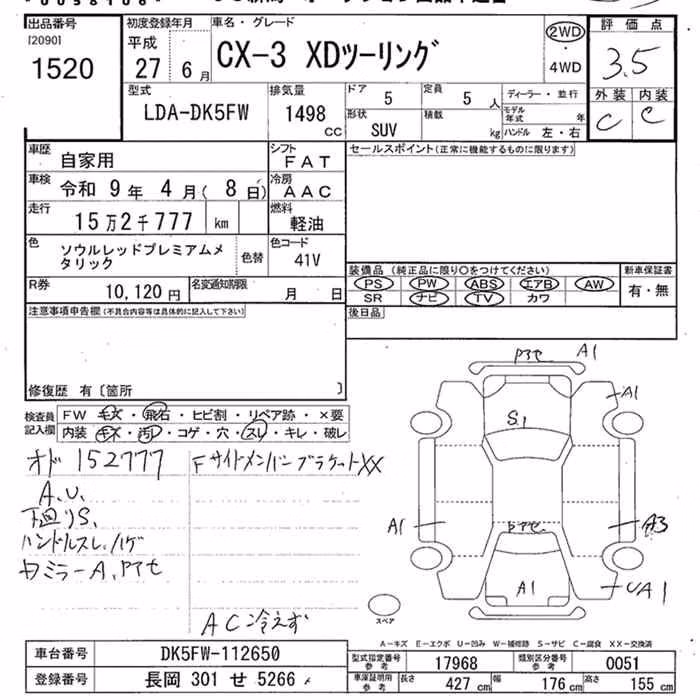 出品番号
[2090]
1520
初度登録年月
平成
27 6月
車名・グレード
CX-3 XDツーリング
2WD
・
4WD
評価点
3.5
外装 内装
C C
型式
LDA-DK5FW
排気量
1498
CC
ドア
5
定員
5人
形状
SUV
積載
kg
ディーラー・並行
モデル年式 年
ハンドル 左・右
車歴
自家用
シフト
FAT
車検
令和 9年 4月(8日)
冷房
AAC
走行
15万2千777 km
燃料
軽油
色
ソウルレッドプレミアムメタリック
色替
色コード
41V
R券
10,120円
名変通知期限
月 日
セールスポイント(正常に機能するものに限ります)
装備品 (純正品に限り○をつけてください)
PS PW ABS エアB AW
SR ナビ TV カワ
新車保証書
有・無
後日品
注意事項申告欄(不具合内容等は具体的に記入して下さい)
修復歴 有〔箇所 〕
検査員記入欄
FW キズ・飛石・ヒビ割・リペア跡・×要
内装 キズ・汚レ・コゲ・穴・スレ・キレ・破レ
オド 152777
FサイドメンバーブラケットXX
A.U.
下廻りS.
ハンドルスレ.ハゲ
ミラーA.アセ
AC冷えず
アセ A1
A1
S.1
A1
アセ
A3
A1
UA1
スペア
A−キズ E−エクボ U−凹み W−補修跡 S−サビ C−腐食 XX−交換済
車台番号
DK5FW-112650
登録番号
長岡 301 せ 5266
型式指定番号
参考
17968
類別区分番号
参考
0051
車庫証明用
参考
長さ 427cm 幅 176cm 高さ 155cm